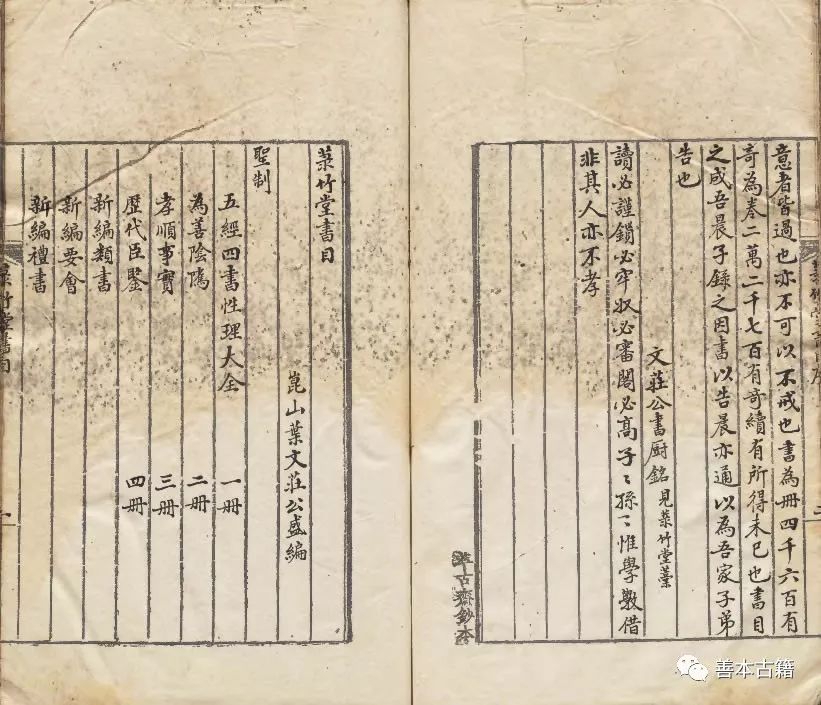 意者皆過也亦不可以不戒也書為冊四千六百有
奇為卷二萬二千七百有奇續有所得未已也書目
之成吾晨子錄之因書以告晨亦通以為吾家子弟
告也
文莊公書厨銘見菉竹堂藁
讀必謹鎖必牢收必審閣必高子〻孫〻惟學斅借
非其人亦不孝
菉竹堂書目
崑山葉文莊公盛編
聖制
五經四書性理大全 一冊
為善陰隲 二冊
孝順事實 三冊
歷代臣鑒 四冊
新編類書
新編要會
新編禮書
菉竹堂書目
善本古籍